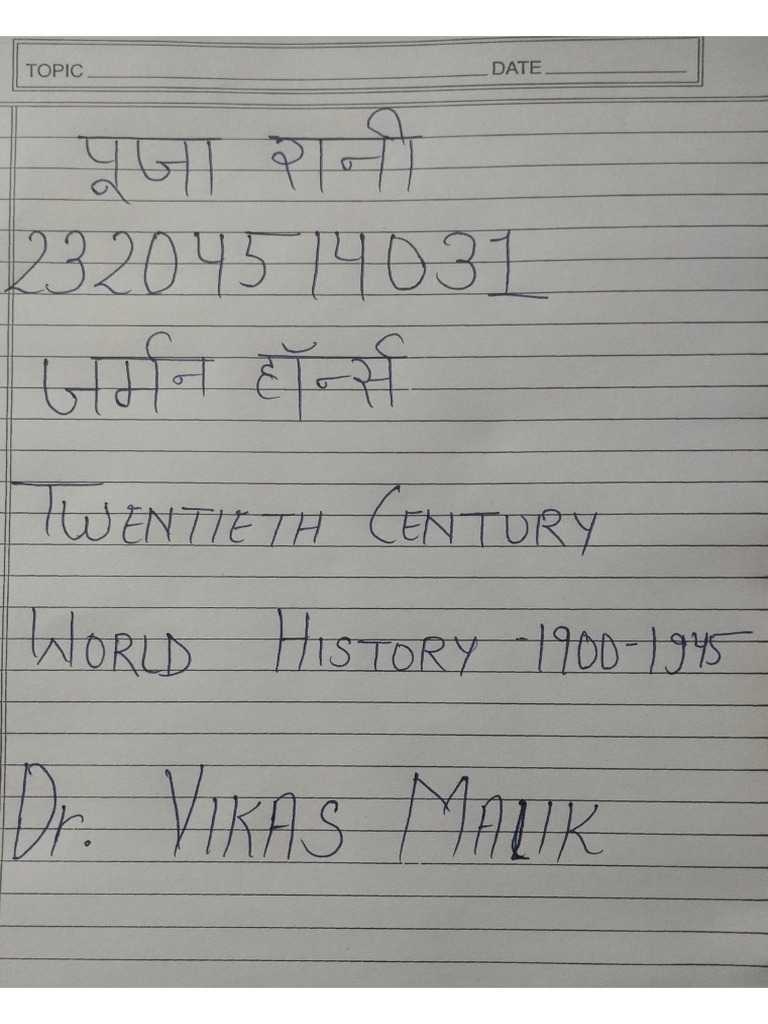 TOPIC DATE
पूजा रानी
23204514031
जर्मन हॉर्न्स
TWENTIETH CENTURY
WORLD HISTORY -1900-1945
Dr. VIKAS MALIK